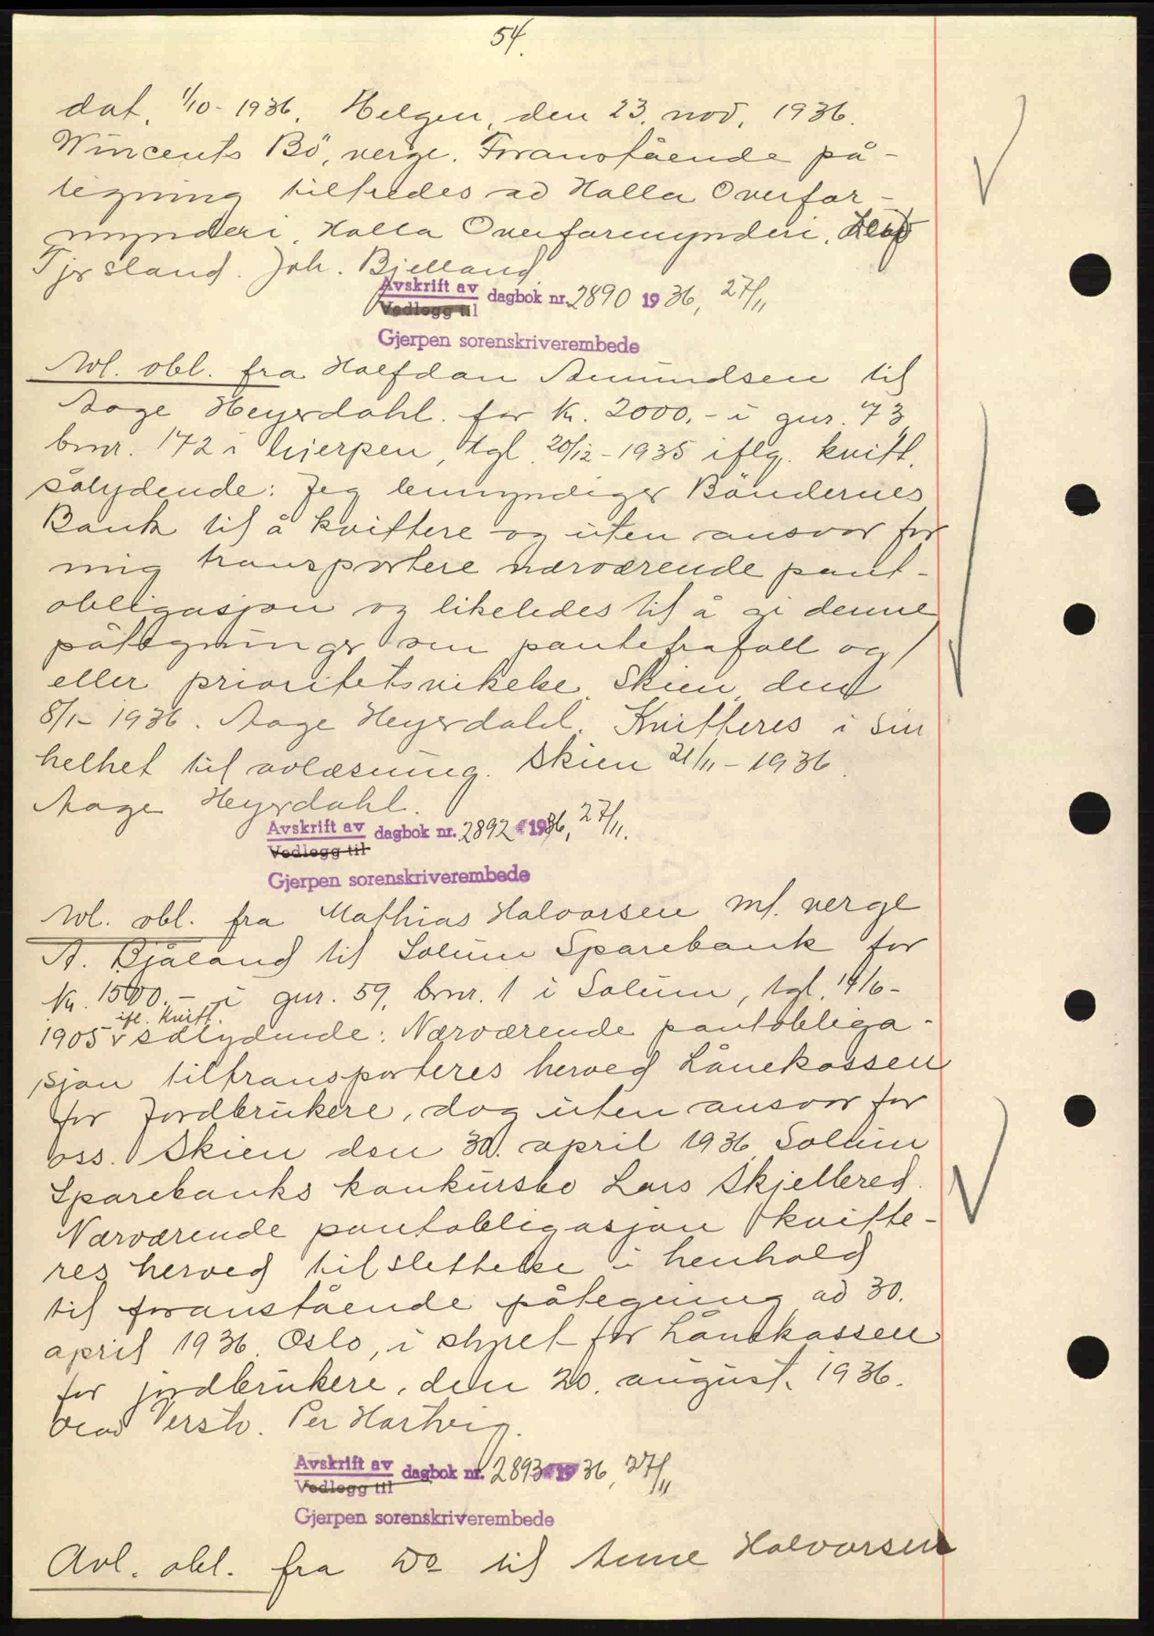 54.
dat. 1/10-1936. Helgen, den 23. nov. 1936.
Wincents Bö, verge. Foranstående på-
tegning tiltredes av Holla Overfor-
mynderi. Holla Overformynderi. Olaf
Tjersland. Joh. Bjelland.
Avskrift av dagbok nr. 2890 1936, 27/11
Vedlegg til
Gjerpen sorenskriverembede
Avl. obl. fra Halfdan Amundsen til
Aage Heyerdahl for kr. 2000.- i gnr. 73,
bnr. 172 i Gjerpen, tgl. 20/12-1935 iflg. kvitt.
sålydende: Jeg bemyndiger Böndernes
Bank til å kvittere og uten ansvar for
mig transportere nærværende pant-
obligasjon og likeledes til å gi denne
påtegninger om pantefrafall og/
eller prioritetsvikelse. Skien, den
8/1-1936. Aage Heyerdahl. Kvitteres i sin
helhet til avlæsning. Skien 21/11-1936.
Aage Heyerdahl.
Avskrift av dagbok nr. 2892 1936, 27/11.
Vedlegg til
Gjerpen sorenskriverembede
Avl. obl. fra Mathias Halvorsen m/. verge
A. Bjåland til Solum Sparebank for
kr. 1500.- i gnr. 59, bnr. 1 i Solum, tgl. 14/6-
ifl. kvitt.
1905 v sålydende: Nærværende pantobliga-
sjon tiltransporteres herved Lånekassen
for Jordbrukere, dog uten ansvar for
oss. Skien den 30. april 1936. Solum
Sparebanks konkursbo Lars Skjelbred.
Nærværende pantobligasjon kvitte-
res herved til slettelse i henhold
til foranstående påtegning av 30.
april 1936. Oslo, i styret for Lånekassen
for jordbrukere, den 20. august. 1936.
Per Hartvig.
Avskrift av dagbok nr. 2893 1936, 27/11
Vedlegg til
Gjerpen sorenskriverembede
Avl. obl. fra Do til Anne Halvorsen